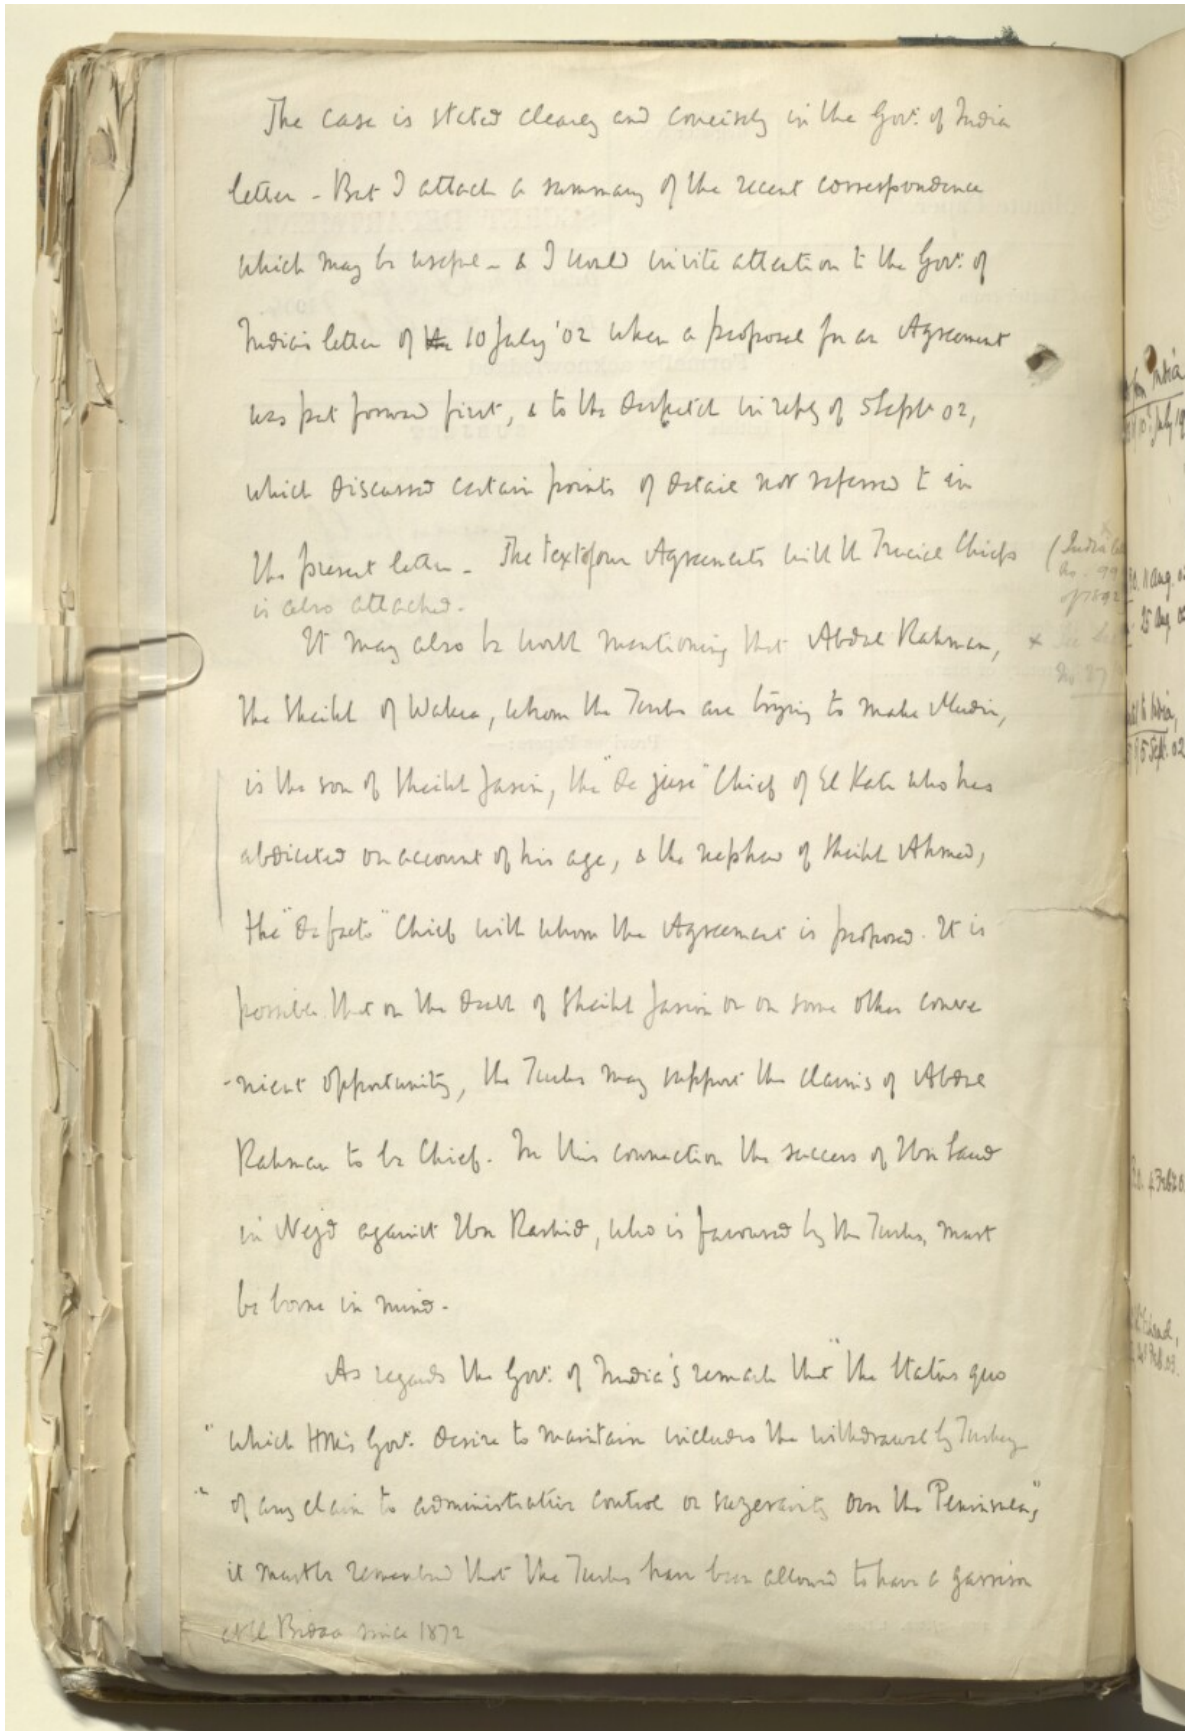 The case is stated clearly and concisely in the Govt. of India
letter - But I attach a summary of the recent correspondence
which may be useful - & I would invite attention to the Govt. of
India's letter of the 10 July '02 when a proposal for an Agreement
was put forward first, & to the despatch in reply of 5 Sept 02,
which discussed certain points of detail not referred to in
the present letter - The text of our Agreements with the Trucial Chiefs
is also attached.
(India
No. 99
of 1892
It may also be worth mentioning that Abdul Rahman,
×
No. 27
the Sheikh of Wakra, whom the Turks are trying to make Mudir,
is the son of Sheikh Jasim, the "de jure" Chief of El Katr who has
abdicated on account of his age, & the nephew of Sheikh Ahmed,
the "de facto" Chief with whom the Agreement is proposed. It is
possible that on the death of Sheikh Jasim or on some other conve
-nient opportunity, the Turks may support the claims of Abdul
Rahman to be Chief. In this connection the success of Ibn Saud
in Nejd against Ibn Rashid, who is favoured by the Turks, must
be borne in mind -
As regards the Govt. of India's remark that "the status quo
"which HM's Govt. desire to maintain includes the withdrawal by Turkey
"of any claim to administrative control or suzerainty over the Peninsula,"
it must be remembered that the Turks have been allowed to have a garrison
at El Bidaa since 1872
India
10 July 19
11 Aug. 0
25 Aug 0
to India,
5 Sept. 02
4 Feb 0
Feb 03.